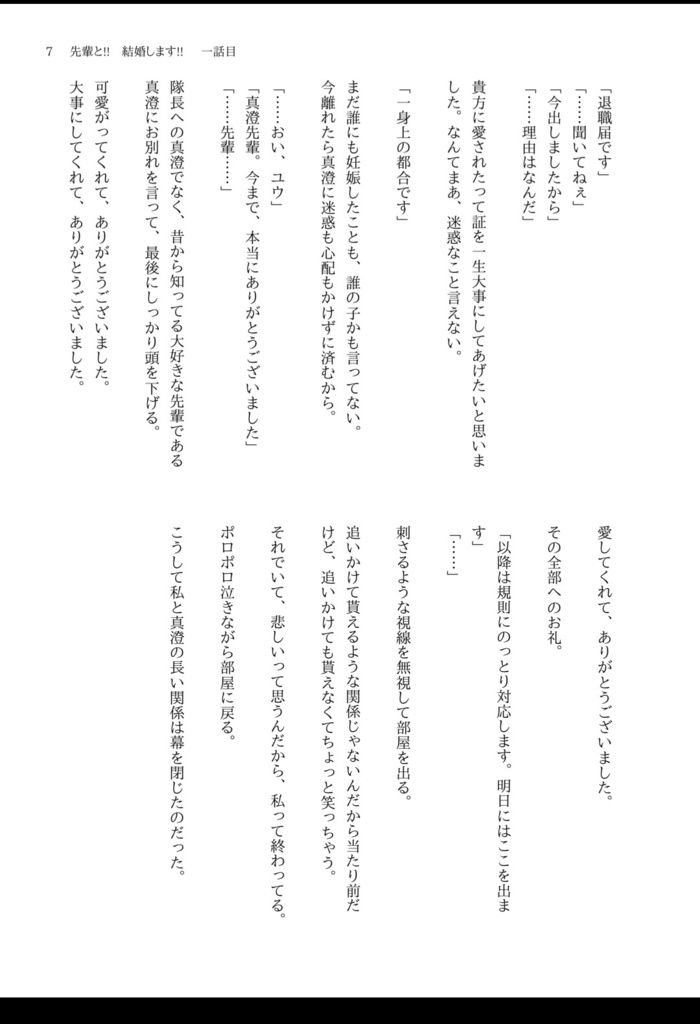 7　先輩と!!　結婚します!!　一話目
「退職届です」
「……聞いてねぇ」
「今出しましたから」
「……理由はなんだ」
貴方に愛されたって証を一生大事にしてあげたいと思いま
した。なんてまあ、迷惑なこと言えない。
「一身上の都合です」
まだ誰にも妊娠したことも、誰の子かも言ってない。
今離れたら真澄に迷惑も心配もかけずに済むから。
「……おい、ユウ」
「真澄先輩。今まで、本当にありがとうございました」
「……先輩……」
隊長への真澄でなく、昔から知ってる大好きな先輩である
真澄にお別れを言って、最後にしっかり頭を下げる。
可愛がってくれて、ありがとうございました。
大事にしてくれて、ありがとうございました。
愛してくれて、ありがとうございました。
その全部へのお礼。
「以降は規則にのっとり対応します。明日にはここを出ま
す」
「……」
刺さるような視線を無視して部屋を出る。
追いかけて貰えるような関係じゃないんだから当たり前だ
けど、追いかけても貰えなくてちょっと笑っちゃう。
それでいて、悲しいって思うんだから、私って終わってる。
ポロポロ泣きながら部屋に戻る。
こうして私と真澄の長い関係は幕を閉じたのだった。